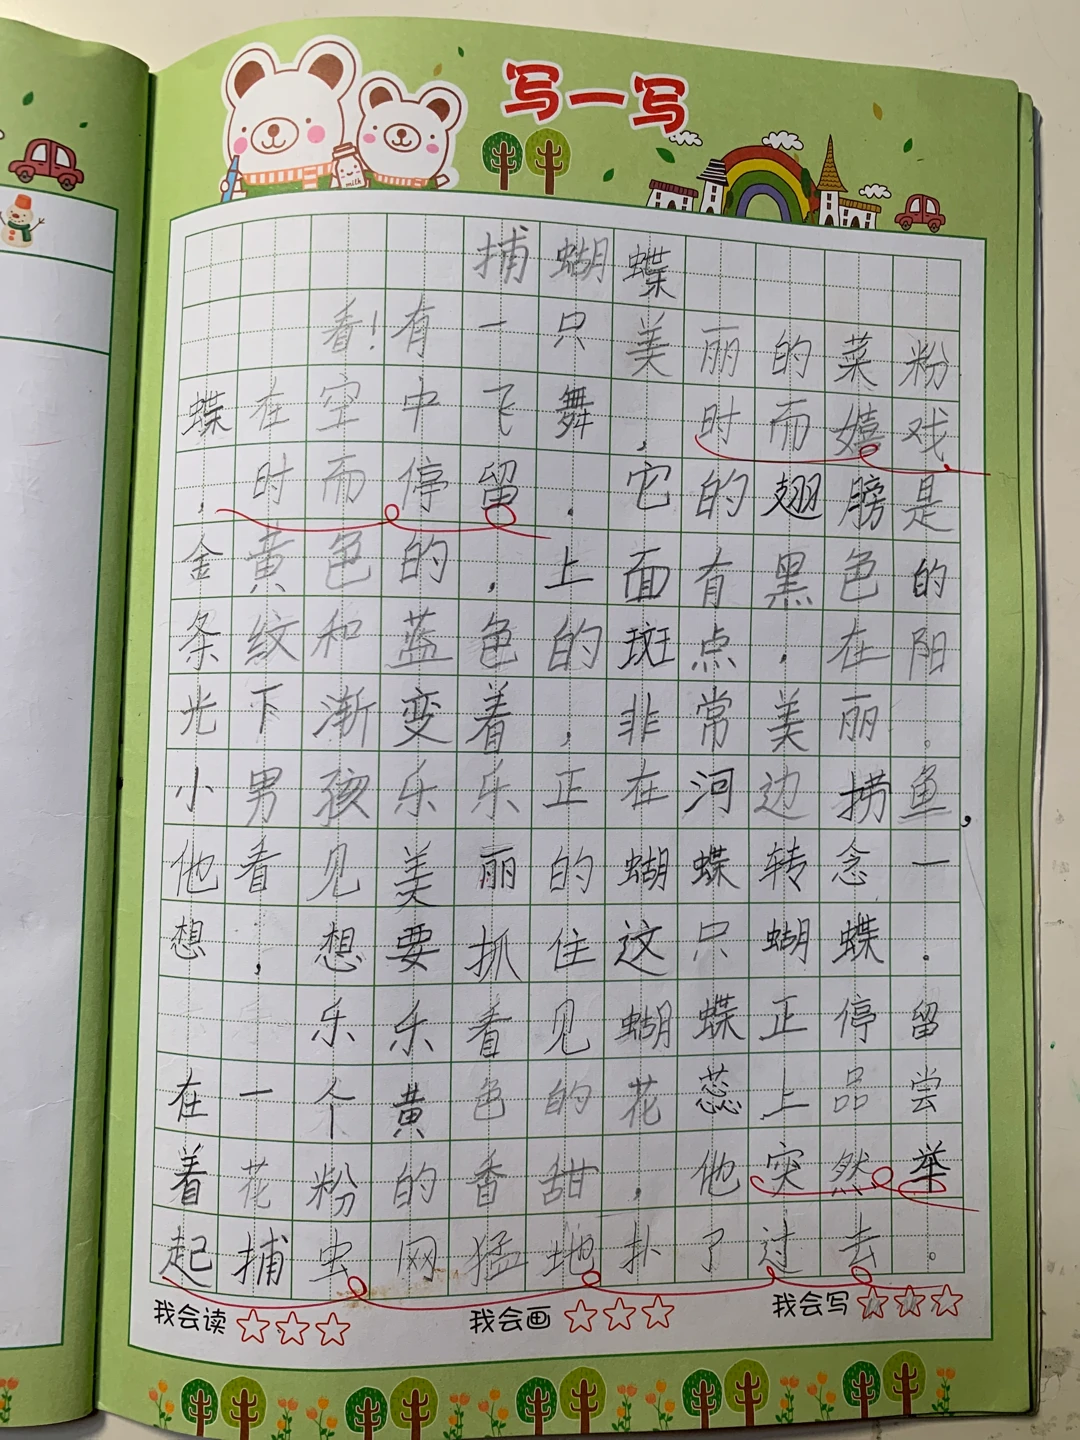 写一写
milk
捕蝴蝶
看！有一只美丽的菜粉
蝶在空中飞舞，时而嬉戏
，时而停留。它的翅膀是
金黄色的，上面有黑色的
条纹和蓝色的斑点，在阳
光下渐变着，非常美丽。
小男孩乐乐正在河边捞鱼，
他看见美丽的蝴蝶转念一
想，想要抓住这只蝴蝶。
乐乐看见蝴蝶正停留
在一个黄色的花蕊上品尝
着花粉的香甜，他突然举
起捕虫网猛地扑了过去。
我会读 我会画 我会写